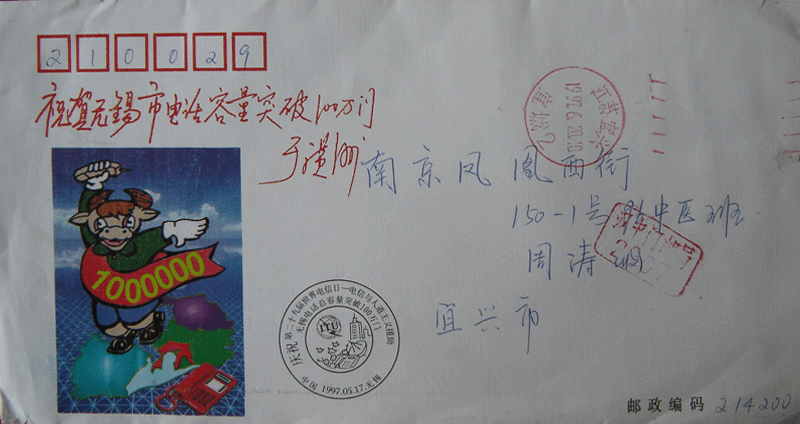 210029
祝贺无锡市电话容量突破100万门
南京凤凰西街
150-1号 中医班
周涛
宜兴市
1000000
庆祝第二十九届世界电信日—电信与人道主义援助
无锡电话总容量突破100万门
ITU
中国 1997.05.17. 无锡
江苏宜兴
1997.6.20.
邮政编码 214200